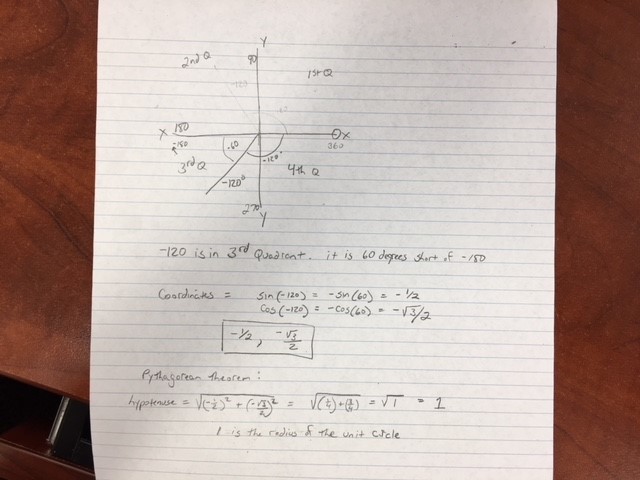 Y
2nd Q
90
1st Q
120
X 180
0 X
-180
360
60
-120°
3rd Q
4th Q
-120°
270
Y
-120 is in 3rd Quadrant. it is 60 degrees short of -180
Coordinates = sin(-120) = -sin(60) = -1/2
Cos(-120) = -cos(60) = -√3/2
-1/2, -√3/2
Pythagorean theorem:
hypotenuse = √(-1/2)² + (-√3/2)² = √(1/4)+(3/4) = √1 = 1
1 is the radius of the unit circle